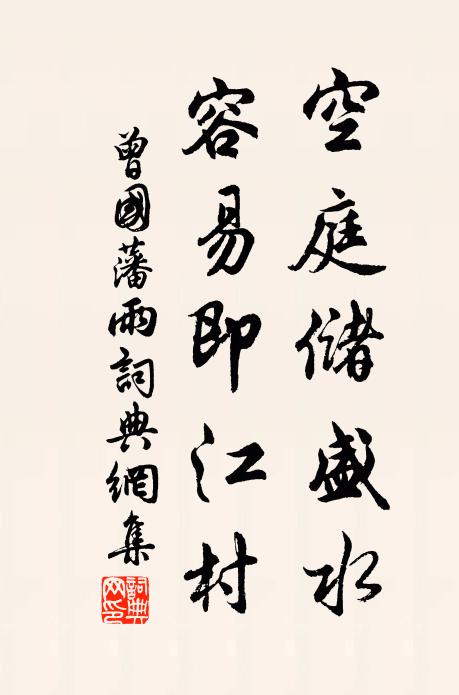 空庭儲盛水
容易即江村
曾國藩雨詞典網集
詞典網印